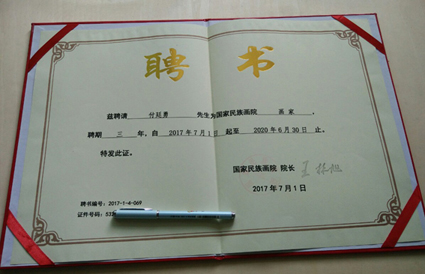 聘 书
兹聘请 付廷勇 先生为国家民族画院 画家 ，
聘期 三 年，自 2017年7月1日 起至 2020年6月30日 止。
特发此证。
国家民族画院 院长
2017年7月1日
聘书编号：2017-1-4-069
证件号码：533